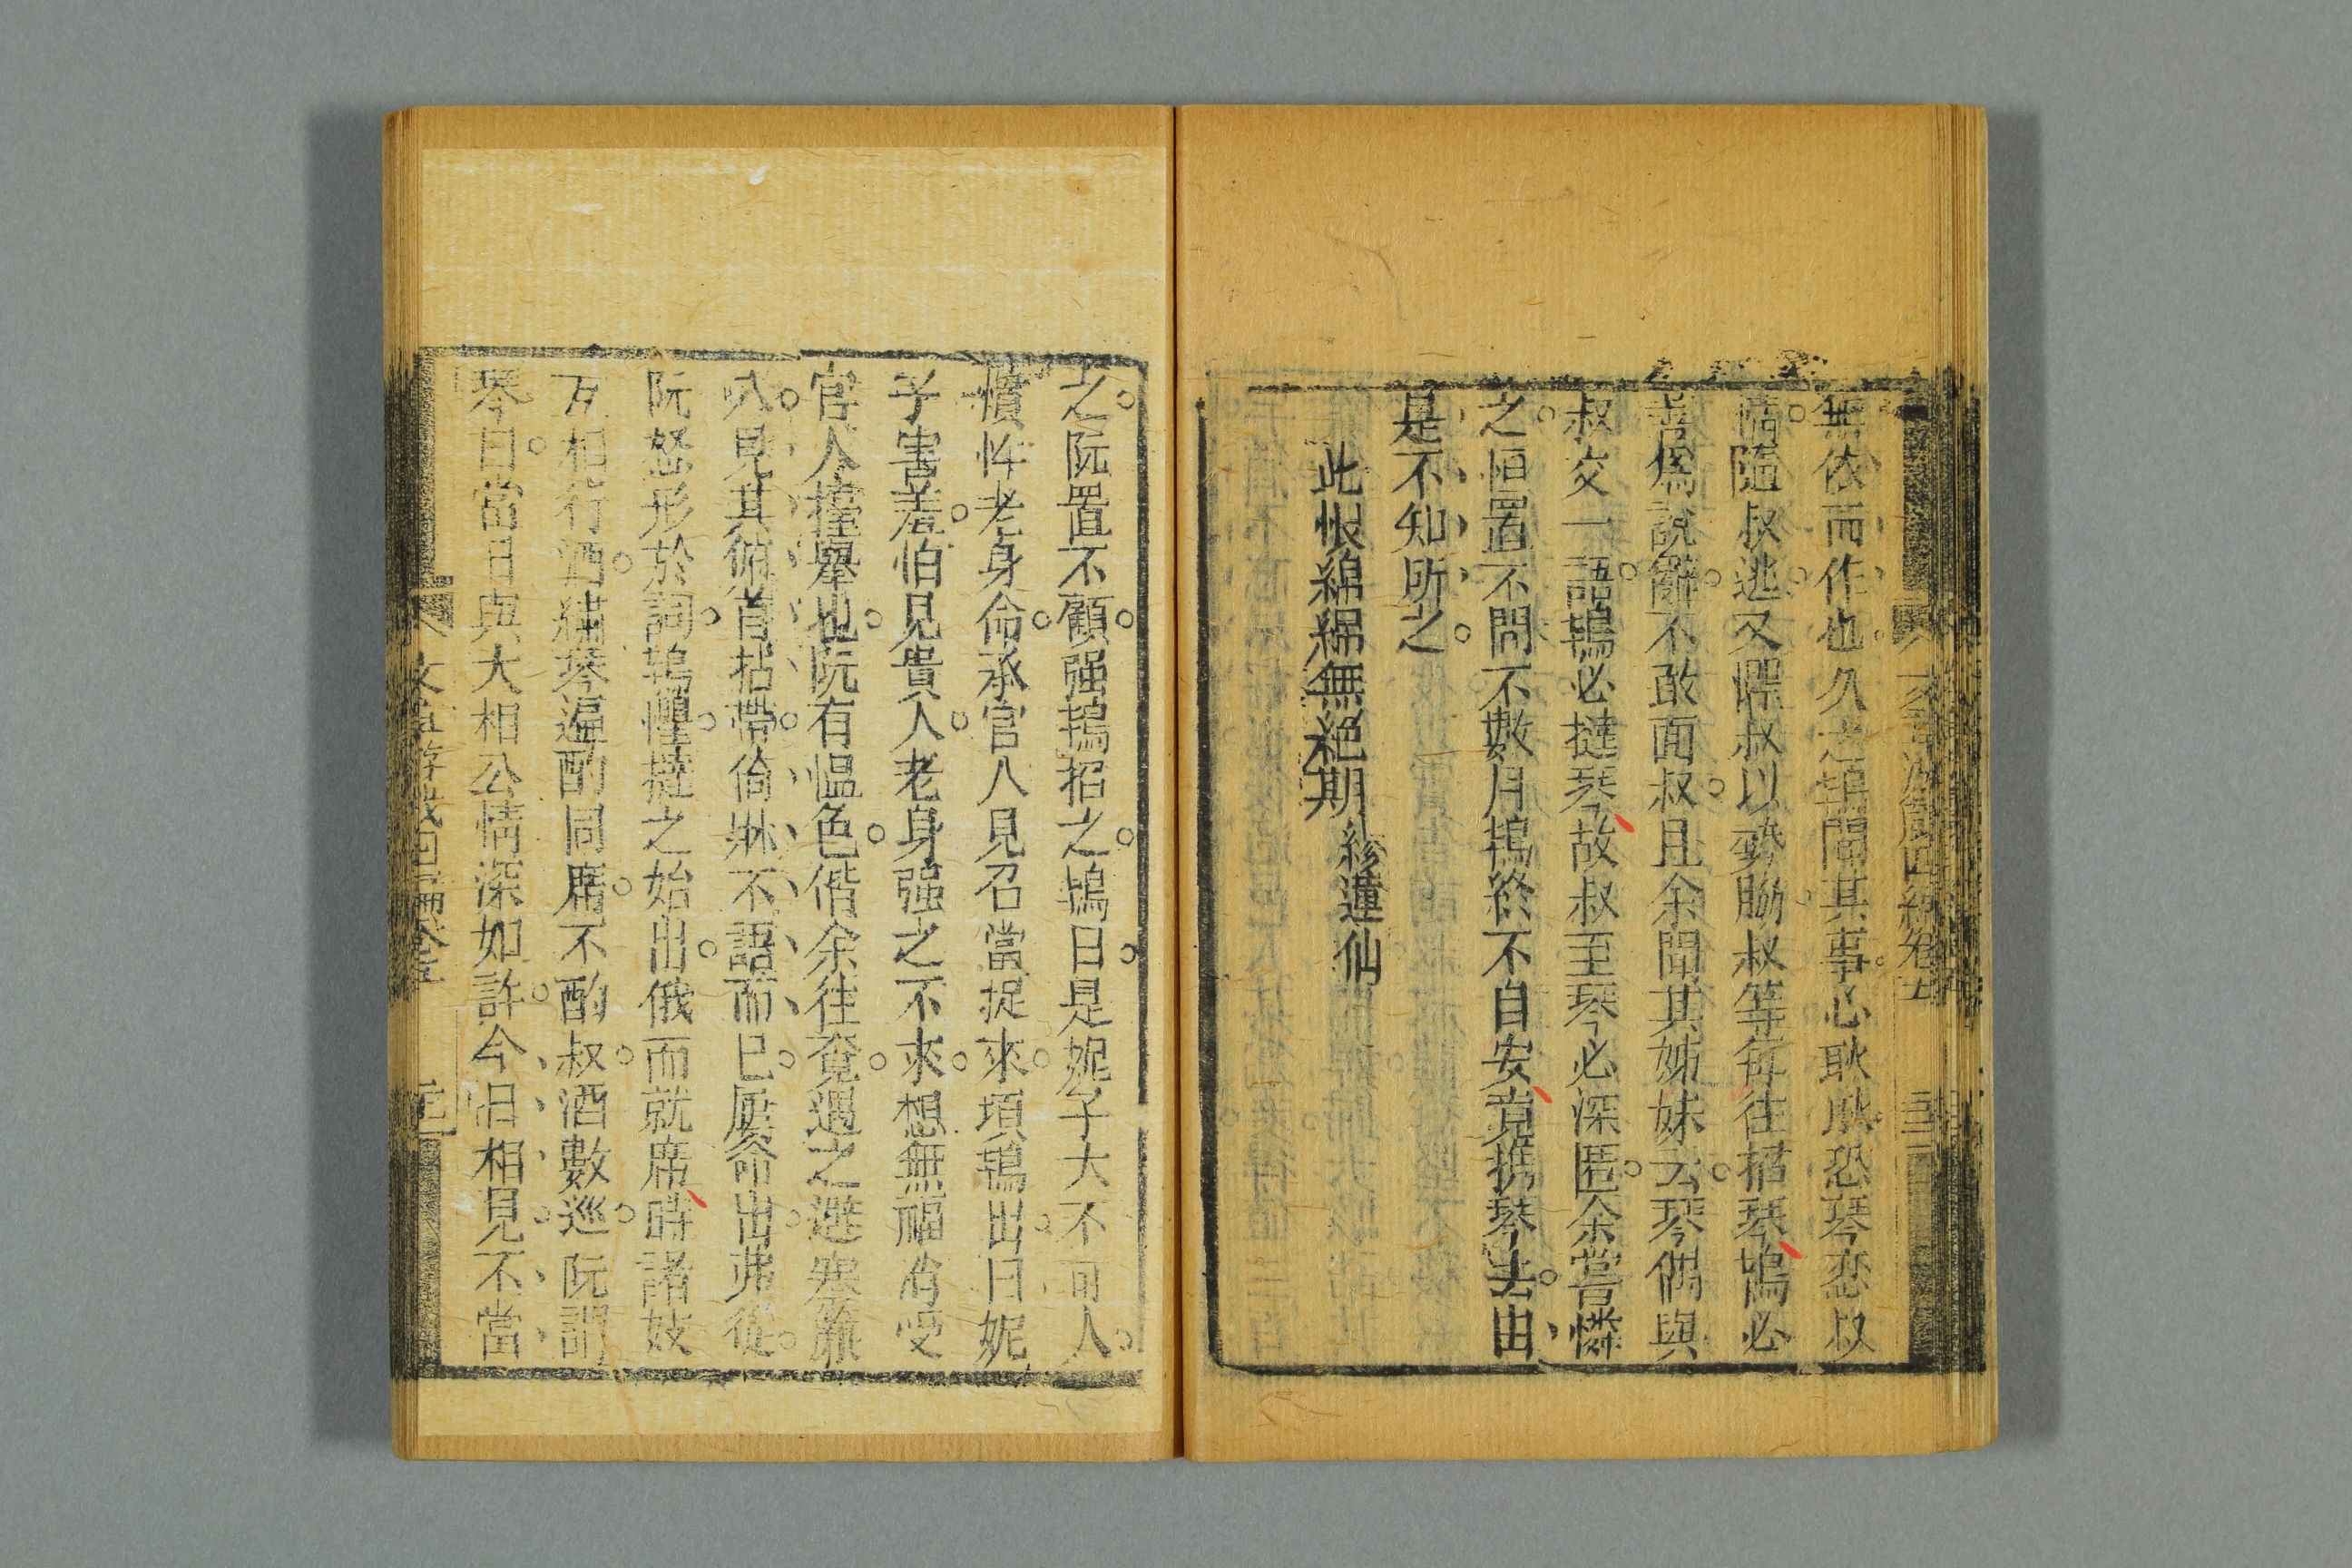 無依而作也久之鴇聞其事心耿耿恐琴恋叔
情隨叔逃又憚叔以勢脇叔等每往招琴鴇必
善為說辭不敢面叔且余聞其姊妹云琴偶與
叔交一語鴇必撻琴故叔至琴必深匿余嘗憐
之恒置不問不數月鴇終不自安竟携琴去由
是不知所之
此恨綿綿無絕期 繆蓮仙
之阮置不顧强鴇招之鴇曰是妮子大不可人
慣忤老身命承官人見召當捉來頃鴇出曰妮
子害羞怕見貴人老身强之不來想無福消受
官人擡舉也阮有慍色偕余往竟遇之避塞簾
入見其俯首拈帶倚牀不語而已屡命出弗從
阮怒形於詞鴇懼撻之始出俄而就席時諸妓
互相行酒繞琴逼酌同席不酌叔酒數巡阮謂
琴曰當日與大相公情深如許今日相見不當
文章游戲四編卷五